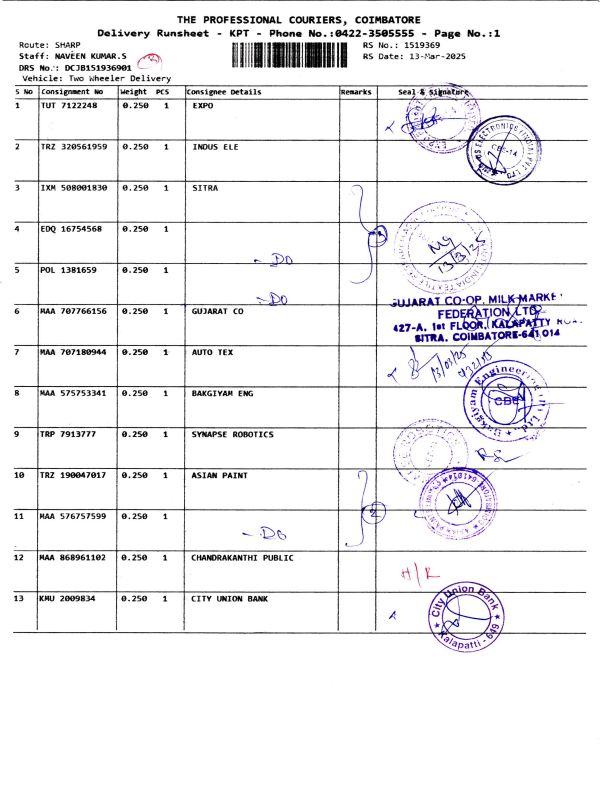 THE PROFESSIONAL COURIERS, COIMBATORE
Delivery Runsheet - KPT - Phone No.:0422-3505555 - Page No.:1
Route: SHARP RS No.: 1519369
Staff: NAVEEN KUMAR.S RS Date: 13-Mar-2025
DRS No.: DCJB151936901
Vehicle: Two Wheeler Delivery
S No Consignment No Weight PCS Consignee Details Remarks Seal & Signature
1 TUT 7122248 0.250 1 EXPO
2 TRZ 320561959 0.250 1 INDUS ELE
3 IXM 508001830 0.250 1 SITRA
4 EDQ 16754568 0.250 1
- DO
5 POL 1381659 0.250 1
- DO
6 MAA 707766156 0.250 1 GUJARAT CO
GUJARAT CO-OP. MILK MARKE
FEDERATION LTD
427-A, 1st FLOOR, KALAPATTY
SITRA, COIMBATORE-641 014
7 MAA 707180944 0.250 1 AUTO TEX
13/03/25
8 MAA 575753341 0.250 1 BAKGIYAM ENG
Bakgiyam Engineering
CBE
9 TRP 7913777 0.250 1 SYNAPSE ROBOTICS
10 TRZ 190047017 0.250 1 ASIAN PAINT
11 MAA 576757599 0.250 1
- DO
2
12 MAA 868961102 0.250 1 CHANDRAKANTHI PUBLIC
H/R
13 KMU 2009834 0.250 1 CITY UNION BANK
City Union Bank
Kalapatti - 649